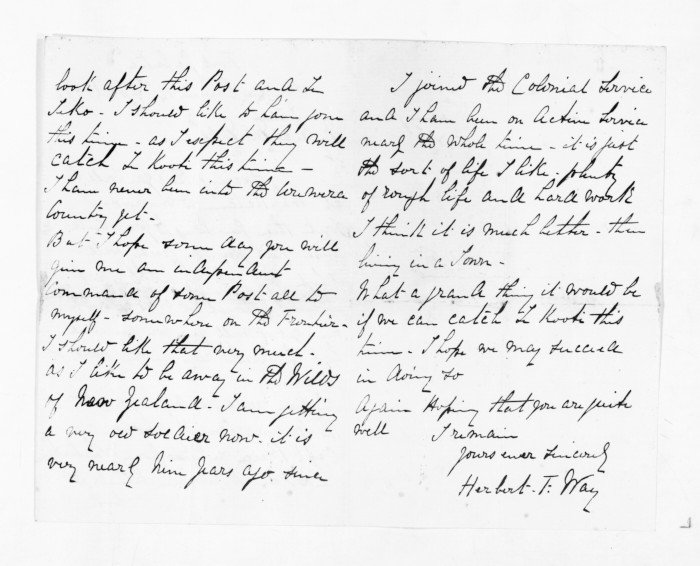 look after this Post and Te
Teko - I should like to have gone
this time - as I expect they will
catch Te Kooti this time -
I have never been into the Urewera
Country yet -
But I hope some day you will
give me an independent
Command of some Post all to
myself - somewhere on the Frontier -
I should like that very much -
as I like to be away in the Wilds
of New Zealand - I am getting
a very old soldier now. it is
very nearly Nine Years ago. since
I joined the Colonial Service
and I have been on Active Service
nearly the whole time - it is just
the sort of life I like - plenty
of rough life and hard work
I think it is much better - then
living in a Town -
What a grand thing it would be
if we can catch Te Kooti this
time - I hope we may succeed
in doing so
Again Hoping that you are quite
well
I remain
Yours ever Sincerely
Herbert. T. Way